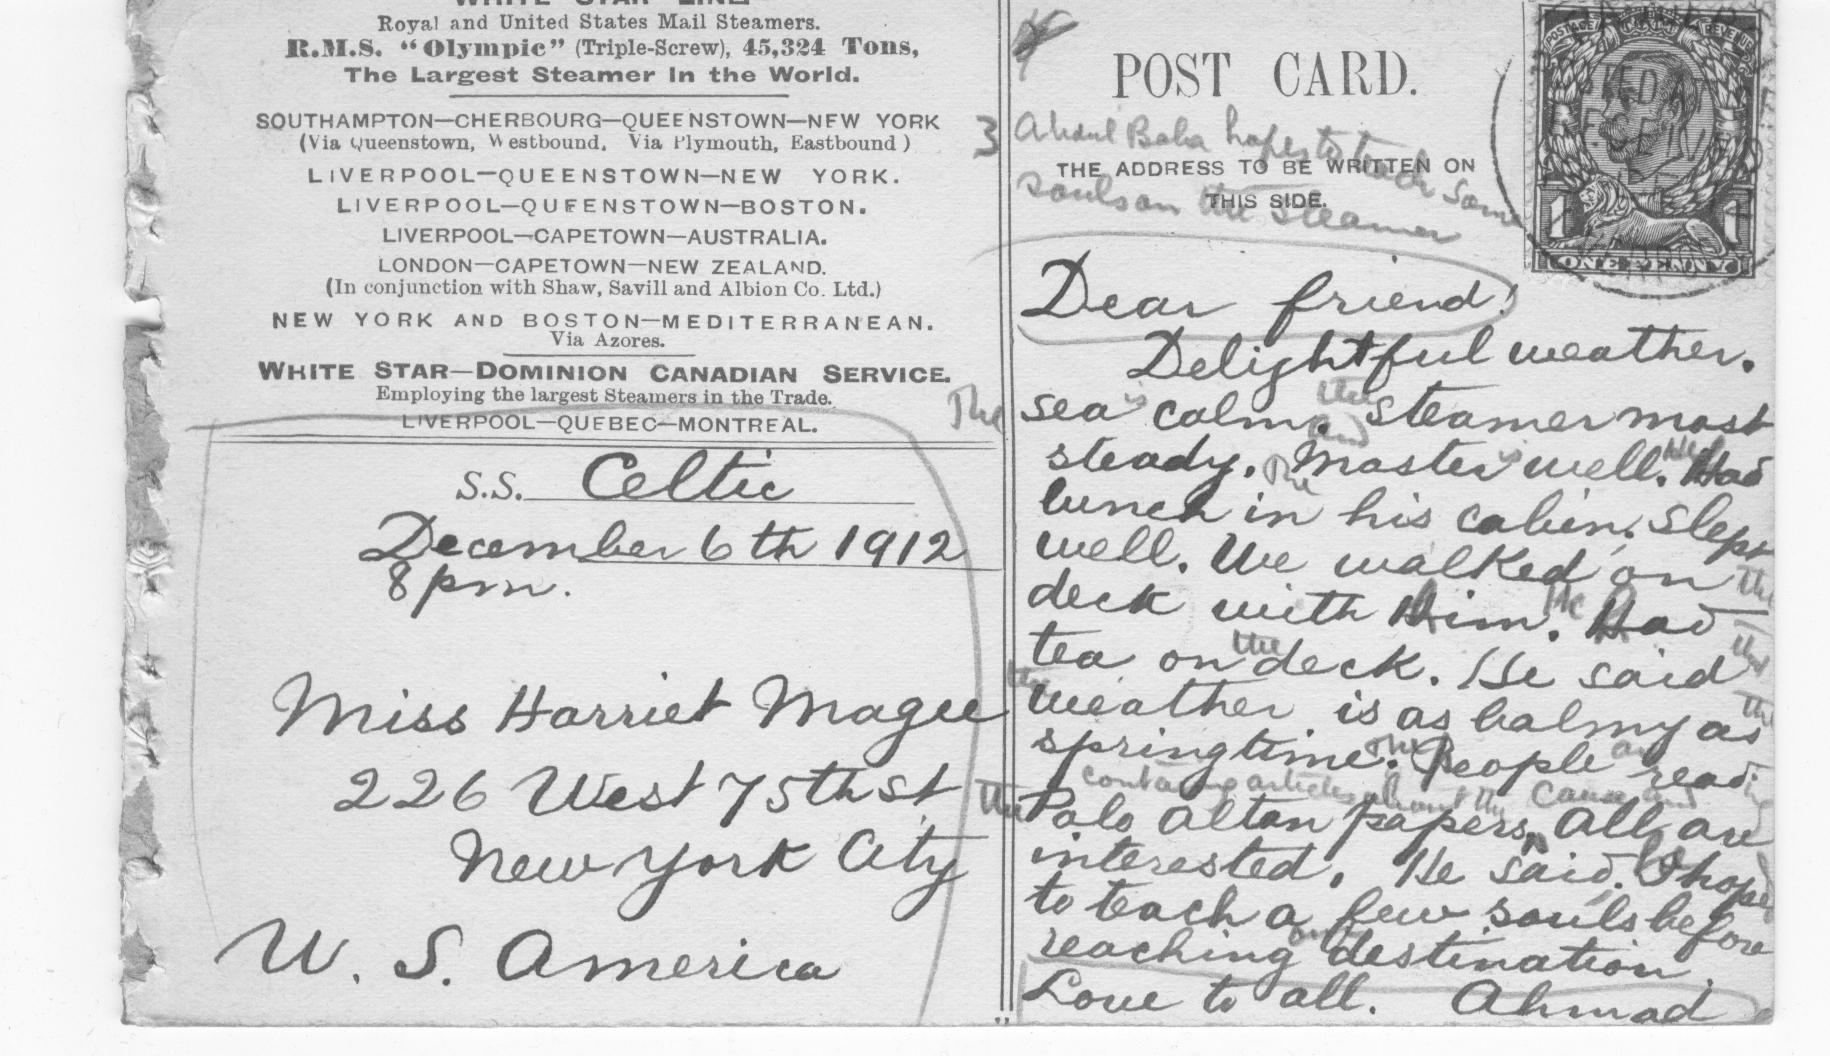 WHITE STAR LINE
Royal and United States Mail Steamers.
R.M.S. "Olympic" (Triple-Screw), 45,324 Tons,
The Largest Steamer in the World.
SOUTHAMPTON—CHERBOURG—QUEENSTOWN—NEW YORK
(Via Queenstown, Westbound, Via Plymouth, Eastbound)
LIVERPOOL—QUEENSTOWN—NEW YORK.
LIVERPOOL—QUEENSTOWN—BOSTON.
LIVERPOOL—CAPETOWN—AUSTRALIA.
LONDON—CAPETOWN—NEW ZEALAND.
(In conjunction with Shaw, Savill and Albion Co. Ltd.)
NEW YORK AND BOSTON—MEDITERRANEAN.
Via Azores.
WHITE STAR—DOMINION CANADIAN SERVICE.
Employing the largest Steamers in the Trade.
LIVERPOOL—QUEBEC—MONTREAL.
S.S. Celtic
December 6th 1912
8 pm.
Miss Harriet Magee
226 West 75th St
New York City
U. S. America
POST CARD.
3 Abdul Baha hopes to teach some
THE ADDRESS TO BE WRITTEN ON
souls on the steamer
THIS SIDE.
POSTAGE REVENUE
1 1
ONE PENNY
Dear friend!
Delightful weather.
The sea is calm. and the steamer most
steady. The Master is well. We Had
lunch in his cabin. Slept
well. We walked on the
deck with Him. He Had
tea on the deck. He said that
the weather is as balmy as the
springtime. The People are reading
the Palo Altan papers, containing articles about the Cause and All are
interested. He said. I hope
to teach a few souls before
reaching our destination.
Love to all. Ahmad